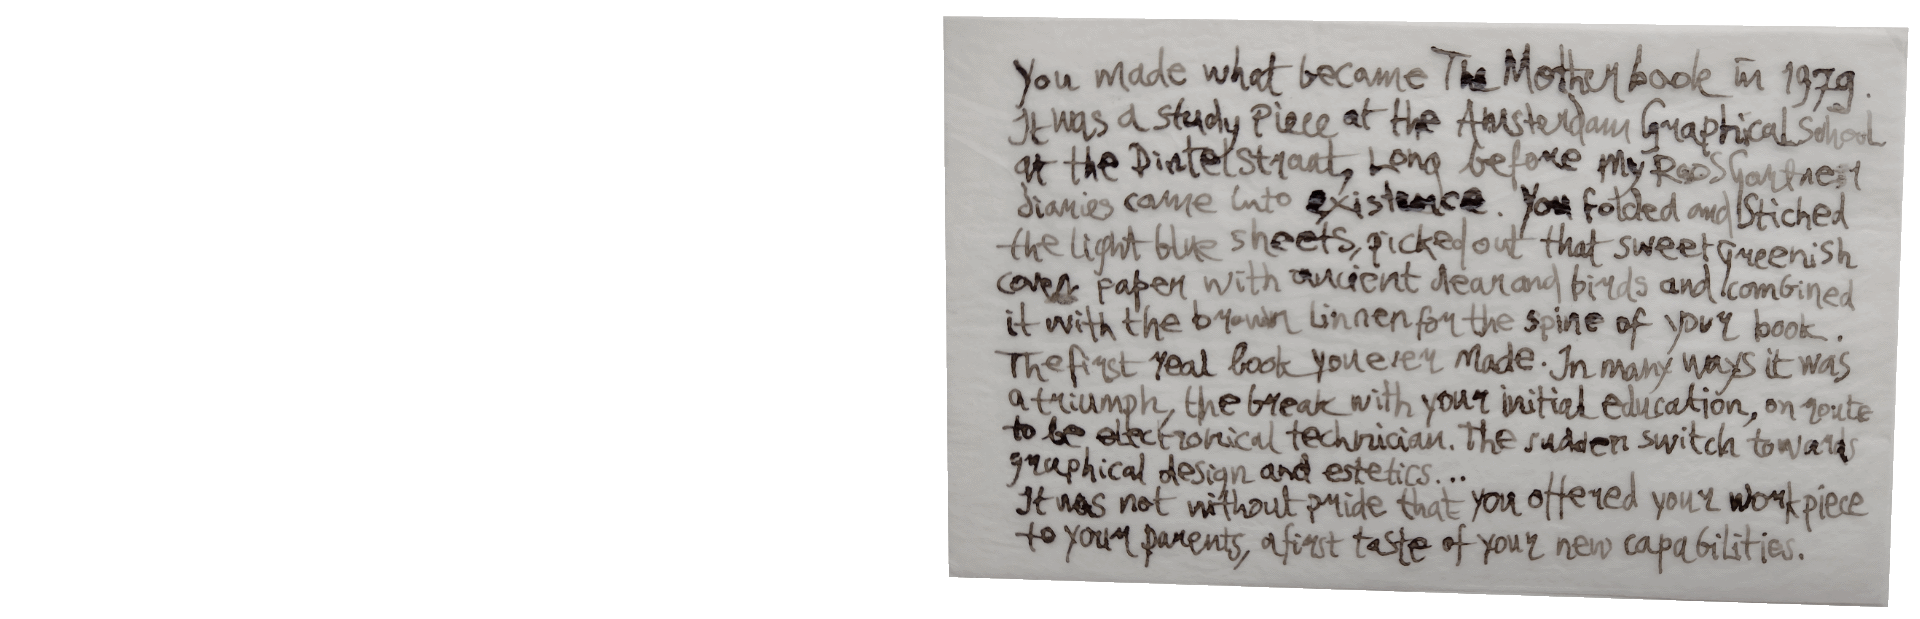 You made what became The Motherbook in 1979.
It was a study Piece at the Amsterdam Graphical School
at the Dintelstraat, Long before my Roos Gartner
diaries came into existence. You folded and Stiched
the light blue sheets, picked out that sweet greenish
cover paper with ancient dear and birds and combined
it with the brown linnen for the spine of your book.
The first real book you ever made. In many ways it was
a triumph, the break with your initial education, on route
to be electronical technician. The sudden switch towards
graphical design and estetics...
It was not without pride that you offered your workpiece
to your parents, a first taste of your new capabilities.